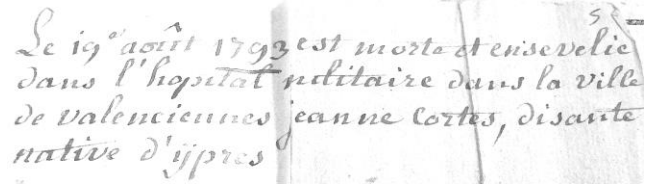 5
Le 19e août 1793 est morte et ensevelie
dans l'hopital militaire dans la ville
de valenciennes jeanne Cortes, disante
native d'ÿpres